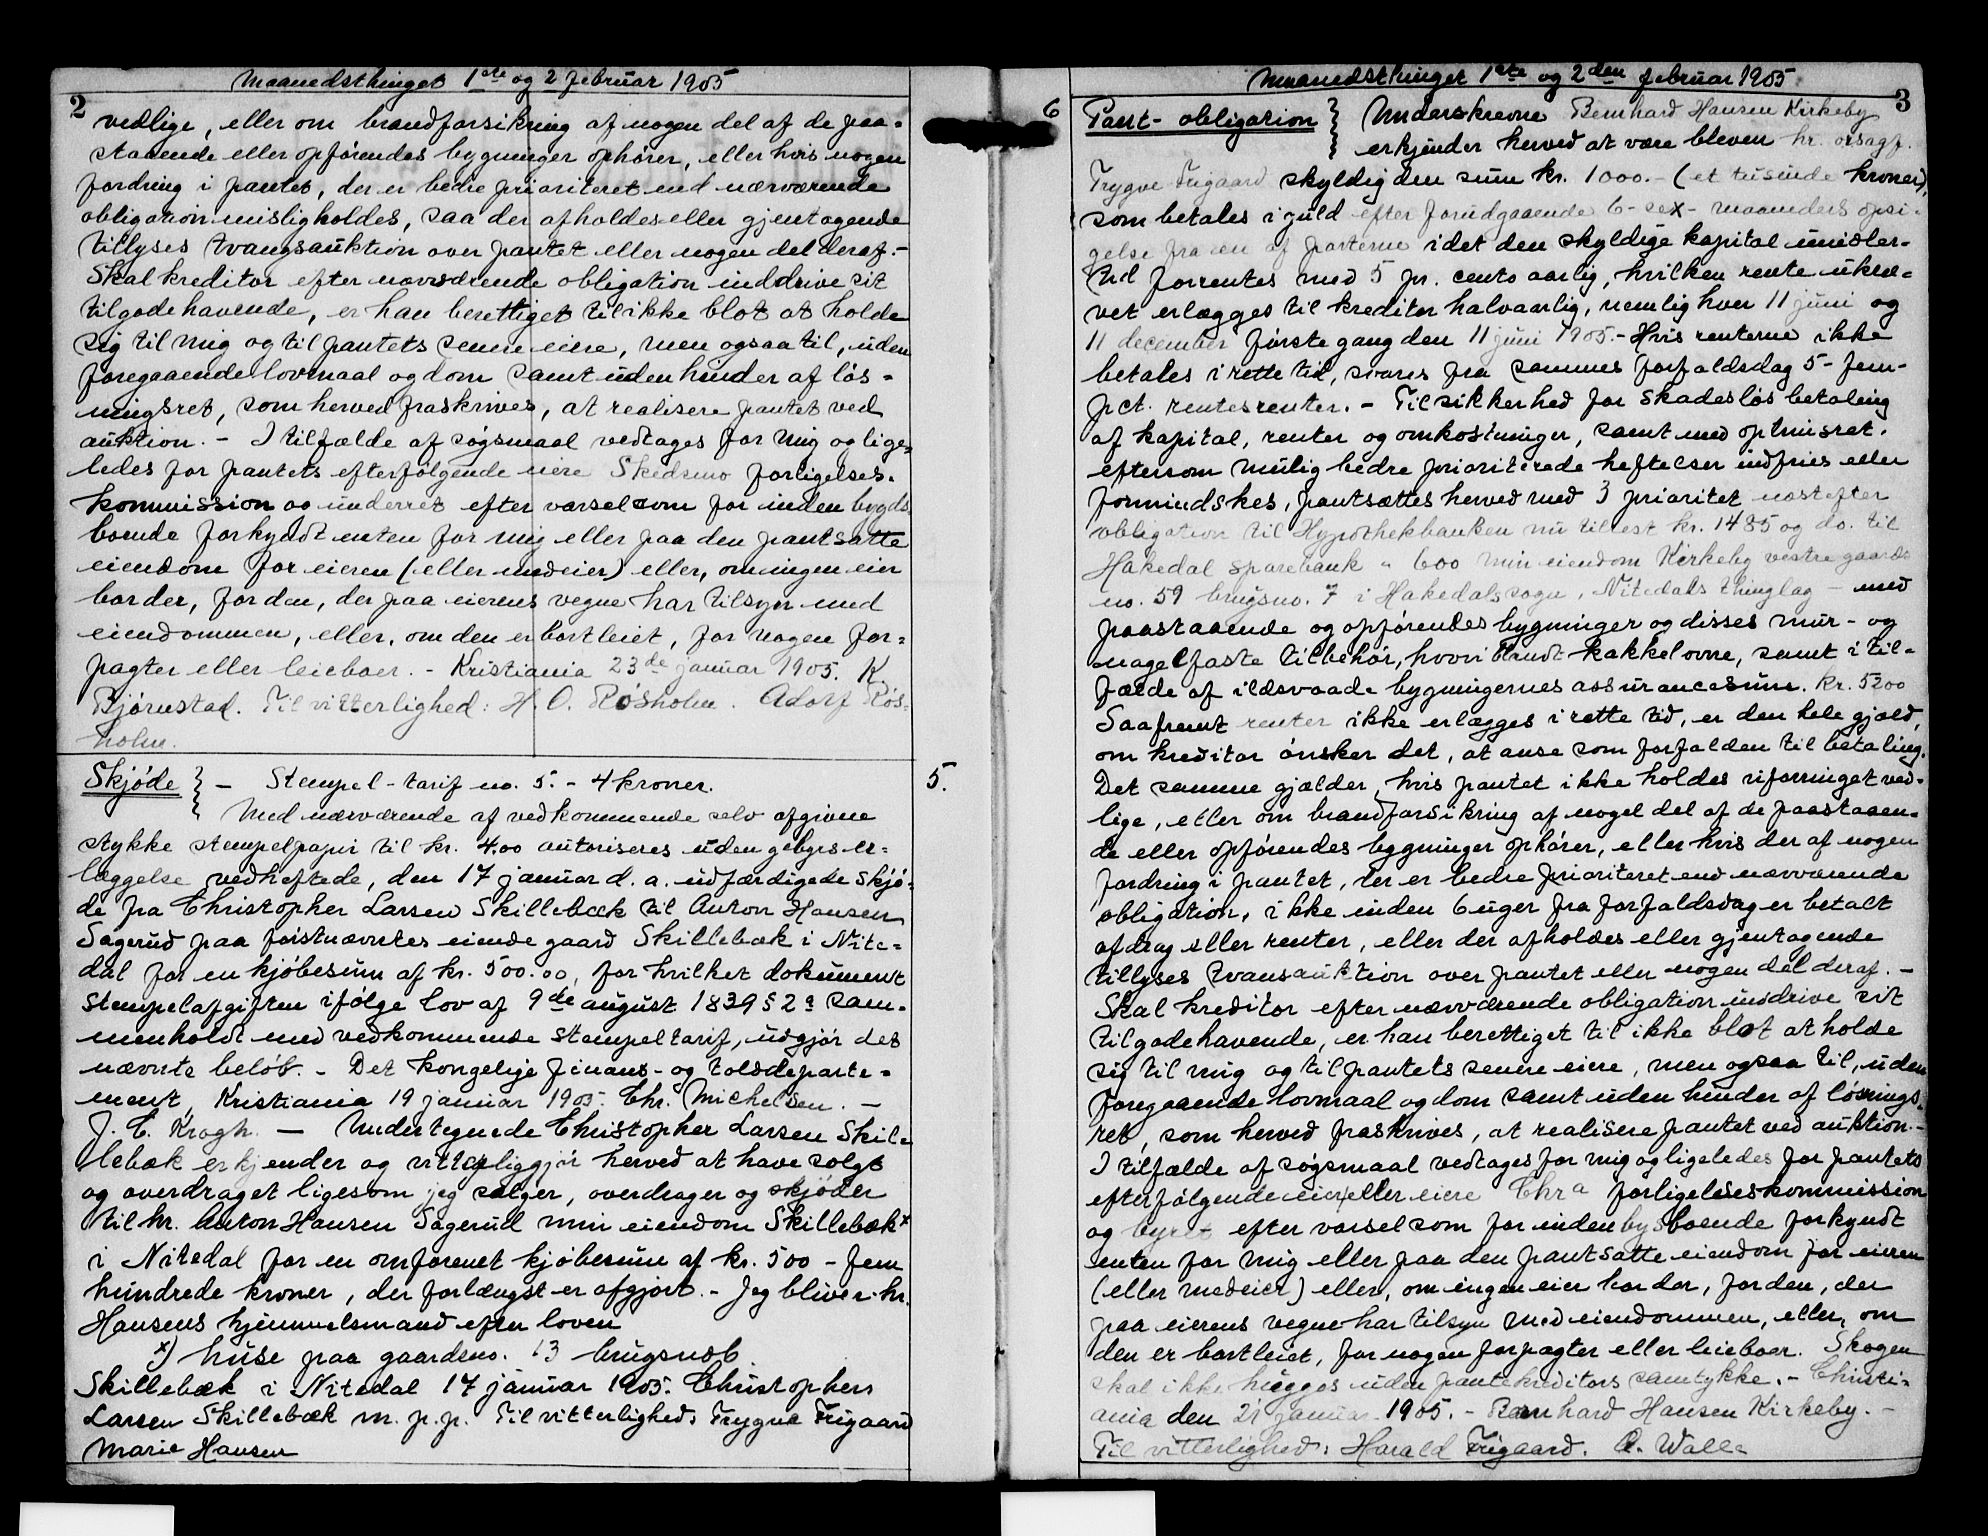 Maanedsthinget 1ste og 2 februar 1905
2
vedlige, eller om brandforsikring af nogen del af de paa-
staaende eller opførendes bygninger ophører, eller hvis nogen
fordring i pantet, der er bedre prioriteret end nærværende
obligation misligholdes, saa der afholdes eller gjentagende
tillyses tvangsauktion over pantet eller nogen del deraf.-
Skal kreditor efter nærværende obligation inddrive sit
tilgodehavende, er han berettiget til ikke blot at holde
sig til mig og til pantets senere eiere, men ogsaa til, uden
foregaaende lovmaal og dom samt uden hinder af løs-
ningsret, som herved fraskrives, at realisere pantet ved
auktion. - I tilfælde af søgsmaal vedtages for mig og lige-
ledes for pantets efterfølgende eiere Skedsmo forligelses-
kommission og underret efter varsel som for inden bygds
boende forkyndt enten for mig eller paa den pantsatte
eiendom for eieren (eller medeier) eller, om ingen eier
bor der, for den, der paa eierens vegne har tilsyn med
eiendommen, eller, om den er bortleiet, for nogen for-
pagter eller leieboer. - Kristiania 23de januar 1905. K.
Bjørnstad. Til vitterlighed: H. O. Røsholm. Adolf Røs-
holm.
Skjøde } - Stempel-tarif no. 5. - 4 kroner.
5.
Med nærværende af vedkommende selv afgivne
stykke stempelpapir til kr. 4.00 autoriseres uden gebyrs er-
læggelse vedheftede, den 17 januar d. a. udfærdigede skjø-
de fra Christopher Larsen Skillebæk til Anton Hansen
Sagerud paa førstnævntes eiende gaard Skillebæk i Nite-
dal for en kjøbesum af kr. 500.00, for hvilket dokument
stempelafgiften ifølge lov af 9de august 1839 § 2 a sam-
menholdt med vedkommende stempeltarif, udgjør det
nævnte beløb. - Det kongelige finans- og tolddeparte-
ment, Kristiania 19 januar 1905. Chr. Michelsen. -
J. E. Krogh. - Undertegnede Christopher Larsen Skil-
lebæk erkjender og vitterliggjør herved at have solgt
og overdraget ligesom jeg sælger, overdrager og skjøder
til hr. Anton Hansen Sagerud min eiendom Skillebæk x
i Nitedal for en omforenet kjøbesum af kr. 500 - fem
hundrede kroner, der forlængst er afgjort. - Jeg bliver hr.
Hansens hjemmelsmand efter loven
x) huse paa gaardsno. 13 brugsno 6
Skillebæk i Nitedal 17 januar 1905. Christophers
Larsen Skillebæk m. p. p. Til vitterlighed: Trygve Frigaard
Marie Hansen
Maanedsthinget 1ste og 2den februar 1905
3
6
Pant-obligation } Underskrevne Bernhard Hansen Kirkeby
erkjender herved at være bleven hr. orsagf.
Trygve Frigaard skyldig den sum kr. 1000.- (et tusinde kroner),
som betales i guld efter forudgaaende 6-sex- maaneders opsi-
gelse fra en af parterne idet den skyldige kapital imidler-
tid forrentes med 5 pr. cento aarlig, hvilken rente ukræ-
vet erlægges til kreditor halvaarlig, nemlig hver 11 juni og
11 december første gang den 11 juni 1905.- Hvis renterne ikke
betales i rette tid, svares fra sammes forfaldsdag 5- fem-
pct. rentesrenter. - Til sikkerhed for skadesløs betaling
af kapital, renter og omkostninger, samt med optrinsret.
eftersom mulig bedre prioriterede heftelser indfries eller
formindskes, pantsættes herved med 3 prioritet næst efter
obligation til Hypothekbanken nu tilrest kr. 1485 og do. til
Hakedal sparebank " 600 min eiendom Kirkeby vestre gaards
no. 59 brugsno. 7 i Hakedals sogn, Nitedals thinglag - med
paastaaende og opførendes bygninger og disses mur- og
nagelfaste tilbehør, hvoriblandt kakkelovne, samt i til-
fælde af ildsvaade bygningernes assurancesum. kr. 5300
Saafremt renter ikke erlægges i rette tid, er den hele gjæld,
om kreditor ønsker det, at anse som forfalden til betaling.
Det samme gjælder, hvis pantet ikke holdes uforringet ved-
lige, eller om brandforsikring af nogel del af de paastaaen-
de eller opførendes bygninger ophører, eller hvis der af nogen
fordring i pantet, der er bedre prioriteret end nærværende
obligation, ikke inden 6 uger fra forfaldsdag er betalt
afdrag eller renter, eller der afholdes eller gjentagende
tillyses tvansauktion over pantet eller nogen del deraf. -
Skal kreditor efter nærværende obligation inddrive sit
tilgodehavende, er han berettiget til ikke blot at holde
sig til mig og til pantets senere eiere, men ogsaa til, uden
foregaaende lovmaal og dom samt uden hinder af løsnings-
ret, som herved fraskrives, at realisere pantet ved auktion.-
I tilfælde af søgsmaal vedtages for mig og ligeledes for pantets
efterfølgende eier eller eiere Chra forligelseskommission
og byret efter varsel som for inden bys boende forkyndt
enten for mig eller paa den pantsatte eiendom for eieren
(eller medeier) eller, om ingen eier bor der, for den, der
paa eierens vegne har tilsyn med eiendommen, eller, om
den er bortleiet, for nogen forpagter eller leieboer. Skogen
skal ikke hugges uden pantekreditors samtykke. - Christi-
ania den 21 januar 1905. - Bernhard Hansen Kirkeby. -
Til vitterlighed: Harald Frigaard. A. Walle